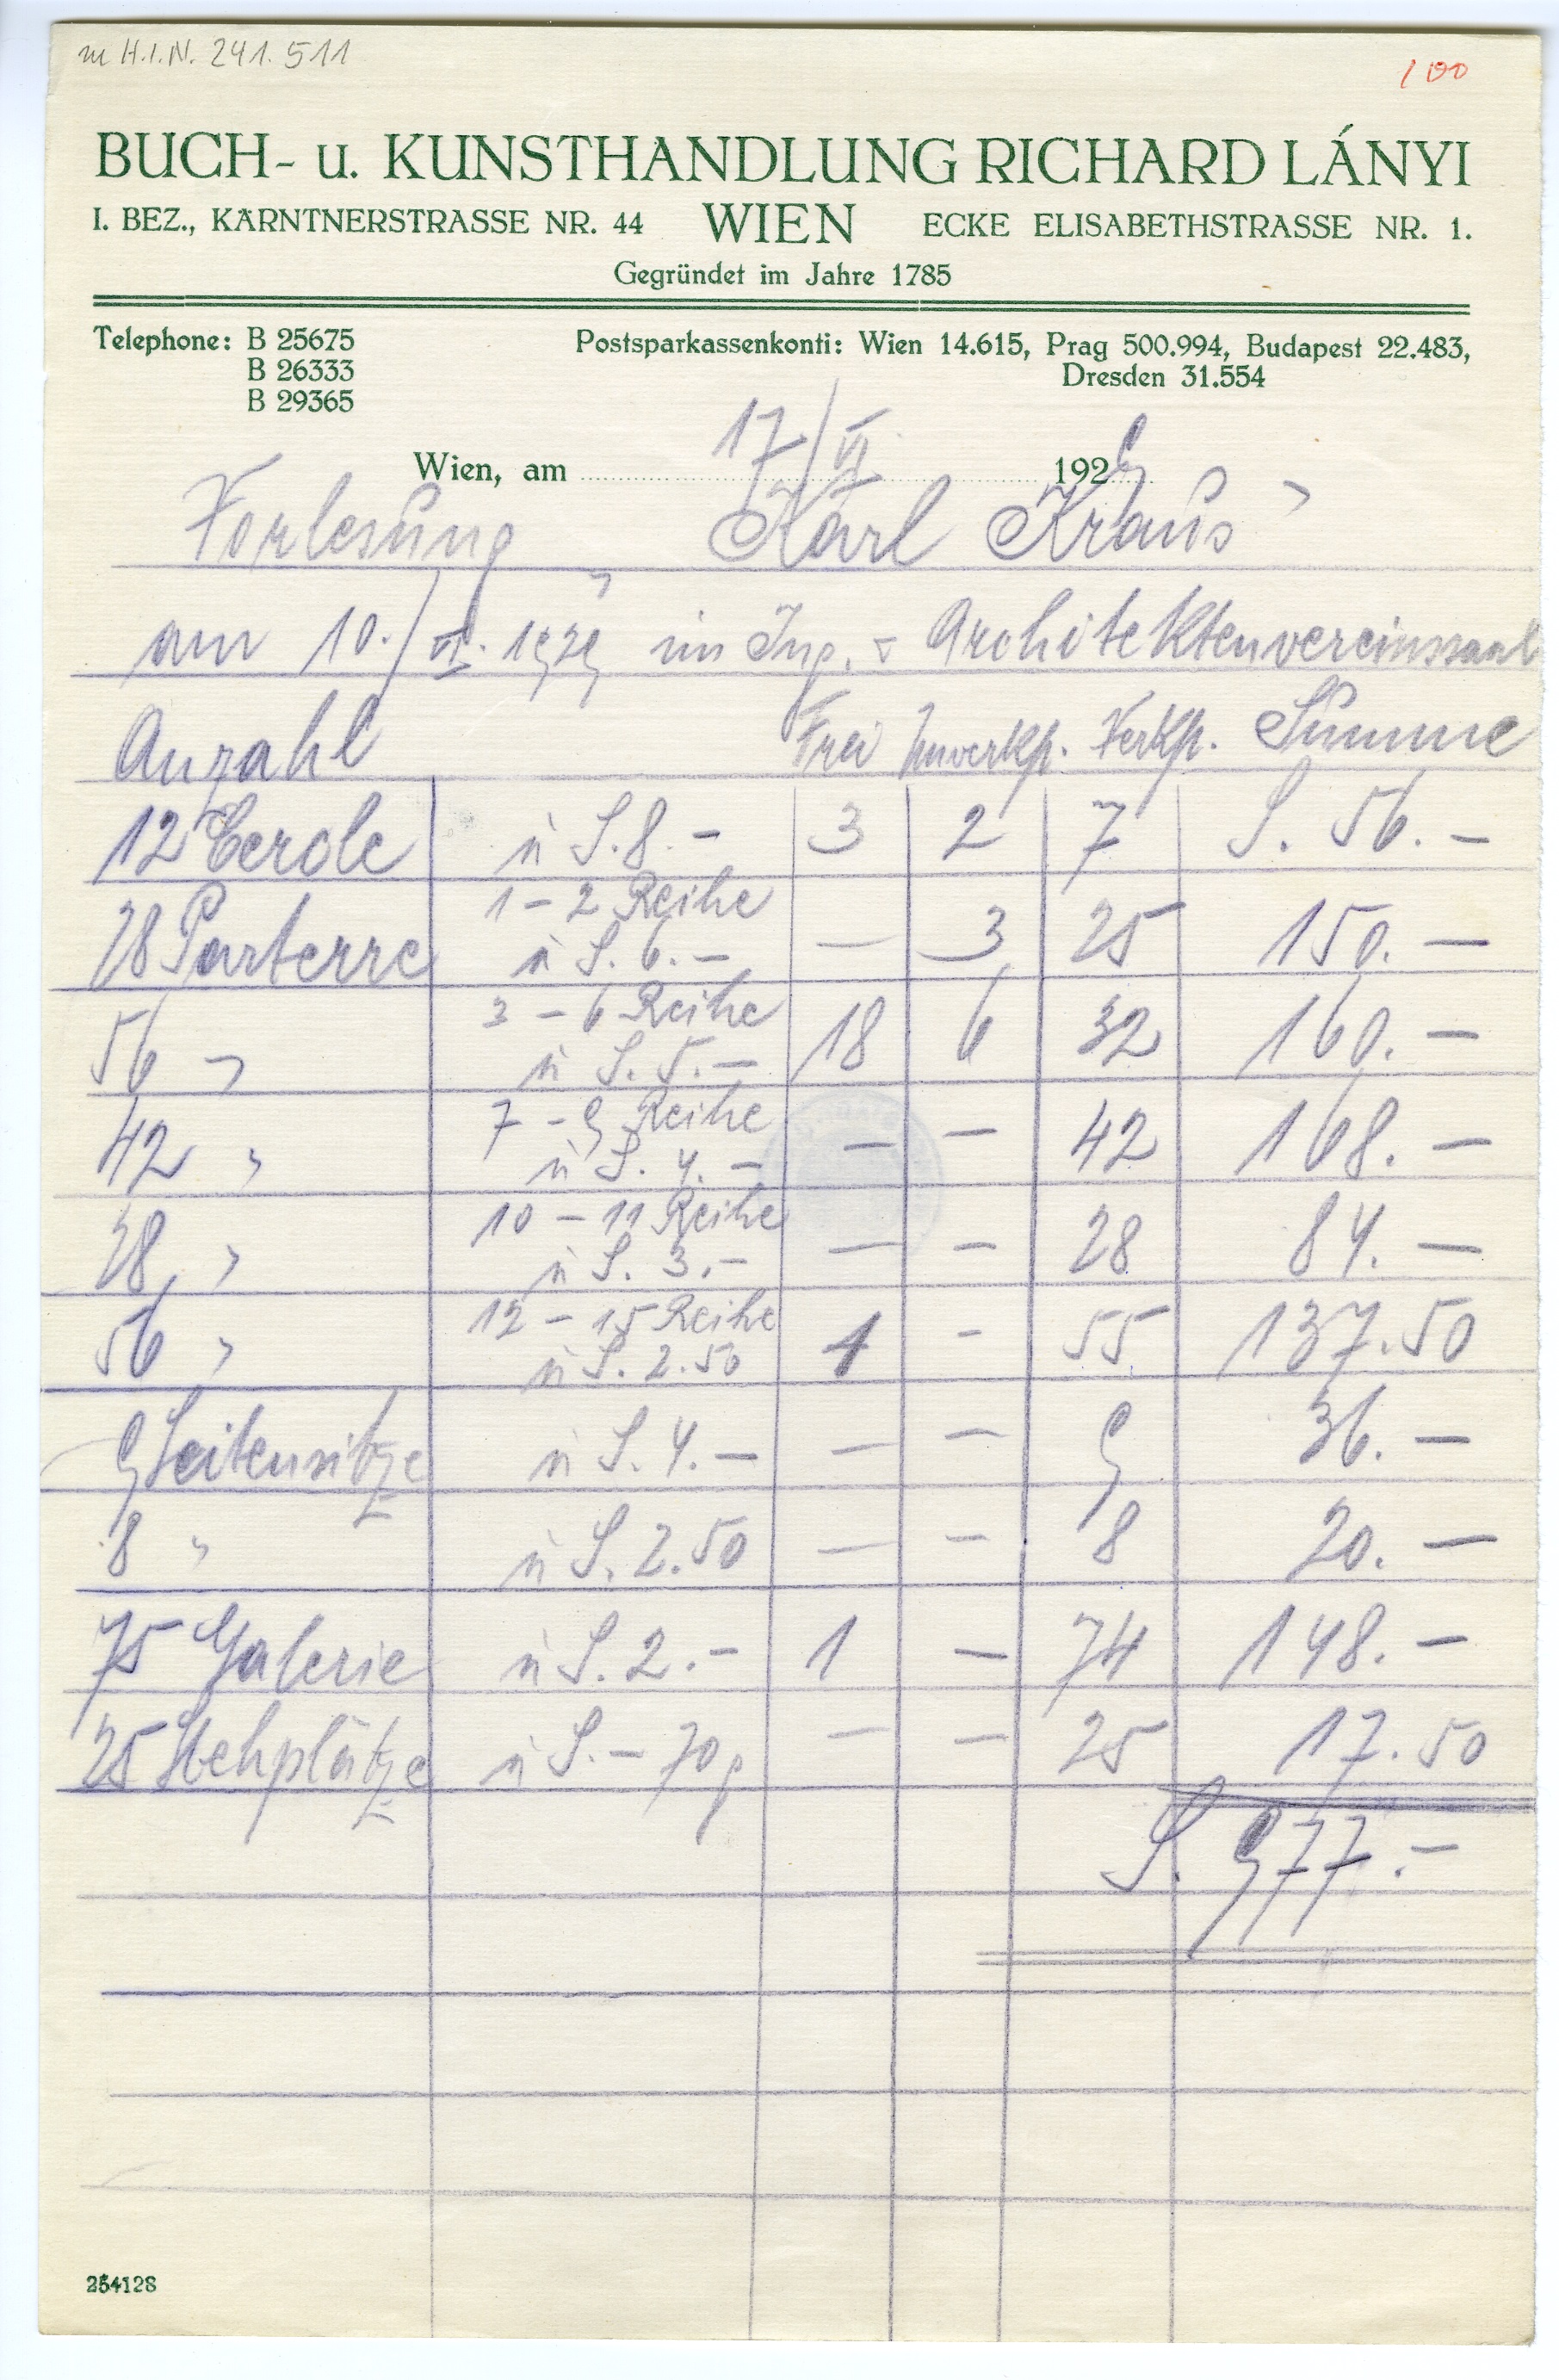 zu H.I.N. 241.511
100
BUCH- u. KUNSTHANDLUNG RICHARD LÁNYI
I. BEZ., KÄRNTNERSTRASSE NR. 44 WIEN ECKE ELISABETHSTRASSE NR. 1.
Gegründet im Jahre 1785
Telephone: B 25675
B 26333
B 29365
Postsparkassenkonti: Wien 14.615, Prag 500.994, Budapest 22.483,
Dresden 31.554
Wien, am 17/VI 1929
Vorlesung Karl Kraus
am 10./VI. 1929 im Ing. u Architektenvereinssaal
Anzahl Frei Unverkft. Verkft. Summe
12 Cercle à S. 8.— 3 2 7 S. 56.—
28 Parterre 1—2 Reihe à S. 6.— — 3 25 150.—
56 " 3—6 Reihe à S. 5.— 18 6 32 160.—
42 " 7—9 Reihe à S. 4.— — — 42 168.—
28 " 10—11 Reihe à S. 3.— — — 28 84.—
56 " 12—15 Reihe à S. 2.50 1 — 55 137.50
9 Seitensitze à S. 4.— — — 9 36.—
8 " à S. 2.50 — — 8 20.—
75 Galerie à S. 2.— 1 — 74 148.—
25 Stehplätze à S.—70 g — — 25 17.50
S. 977.—
254128